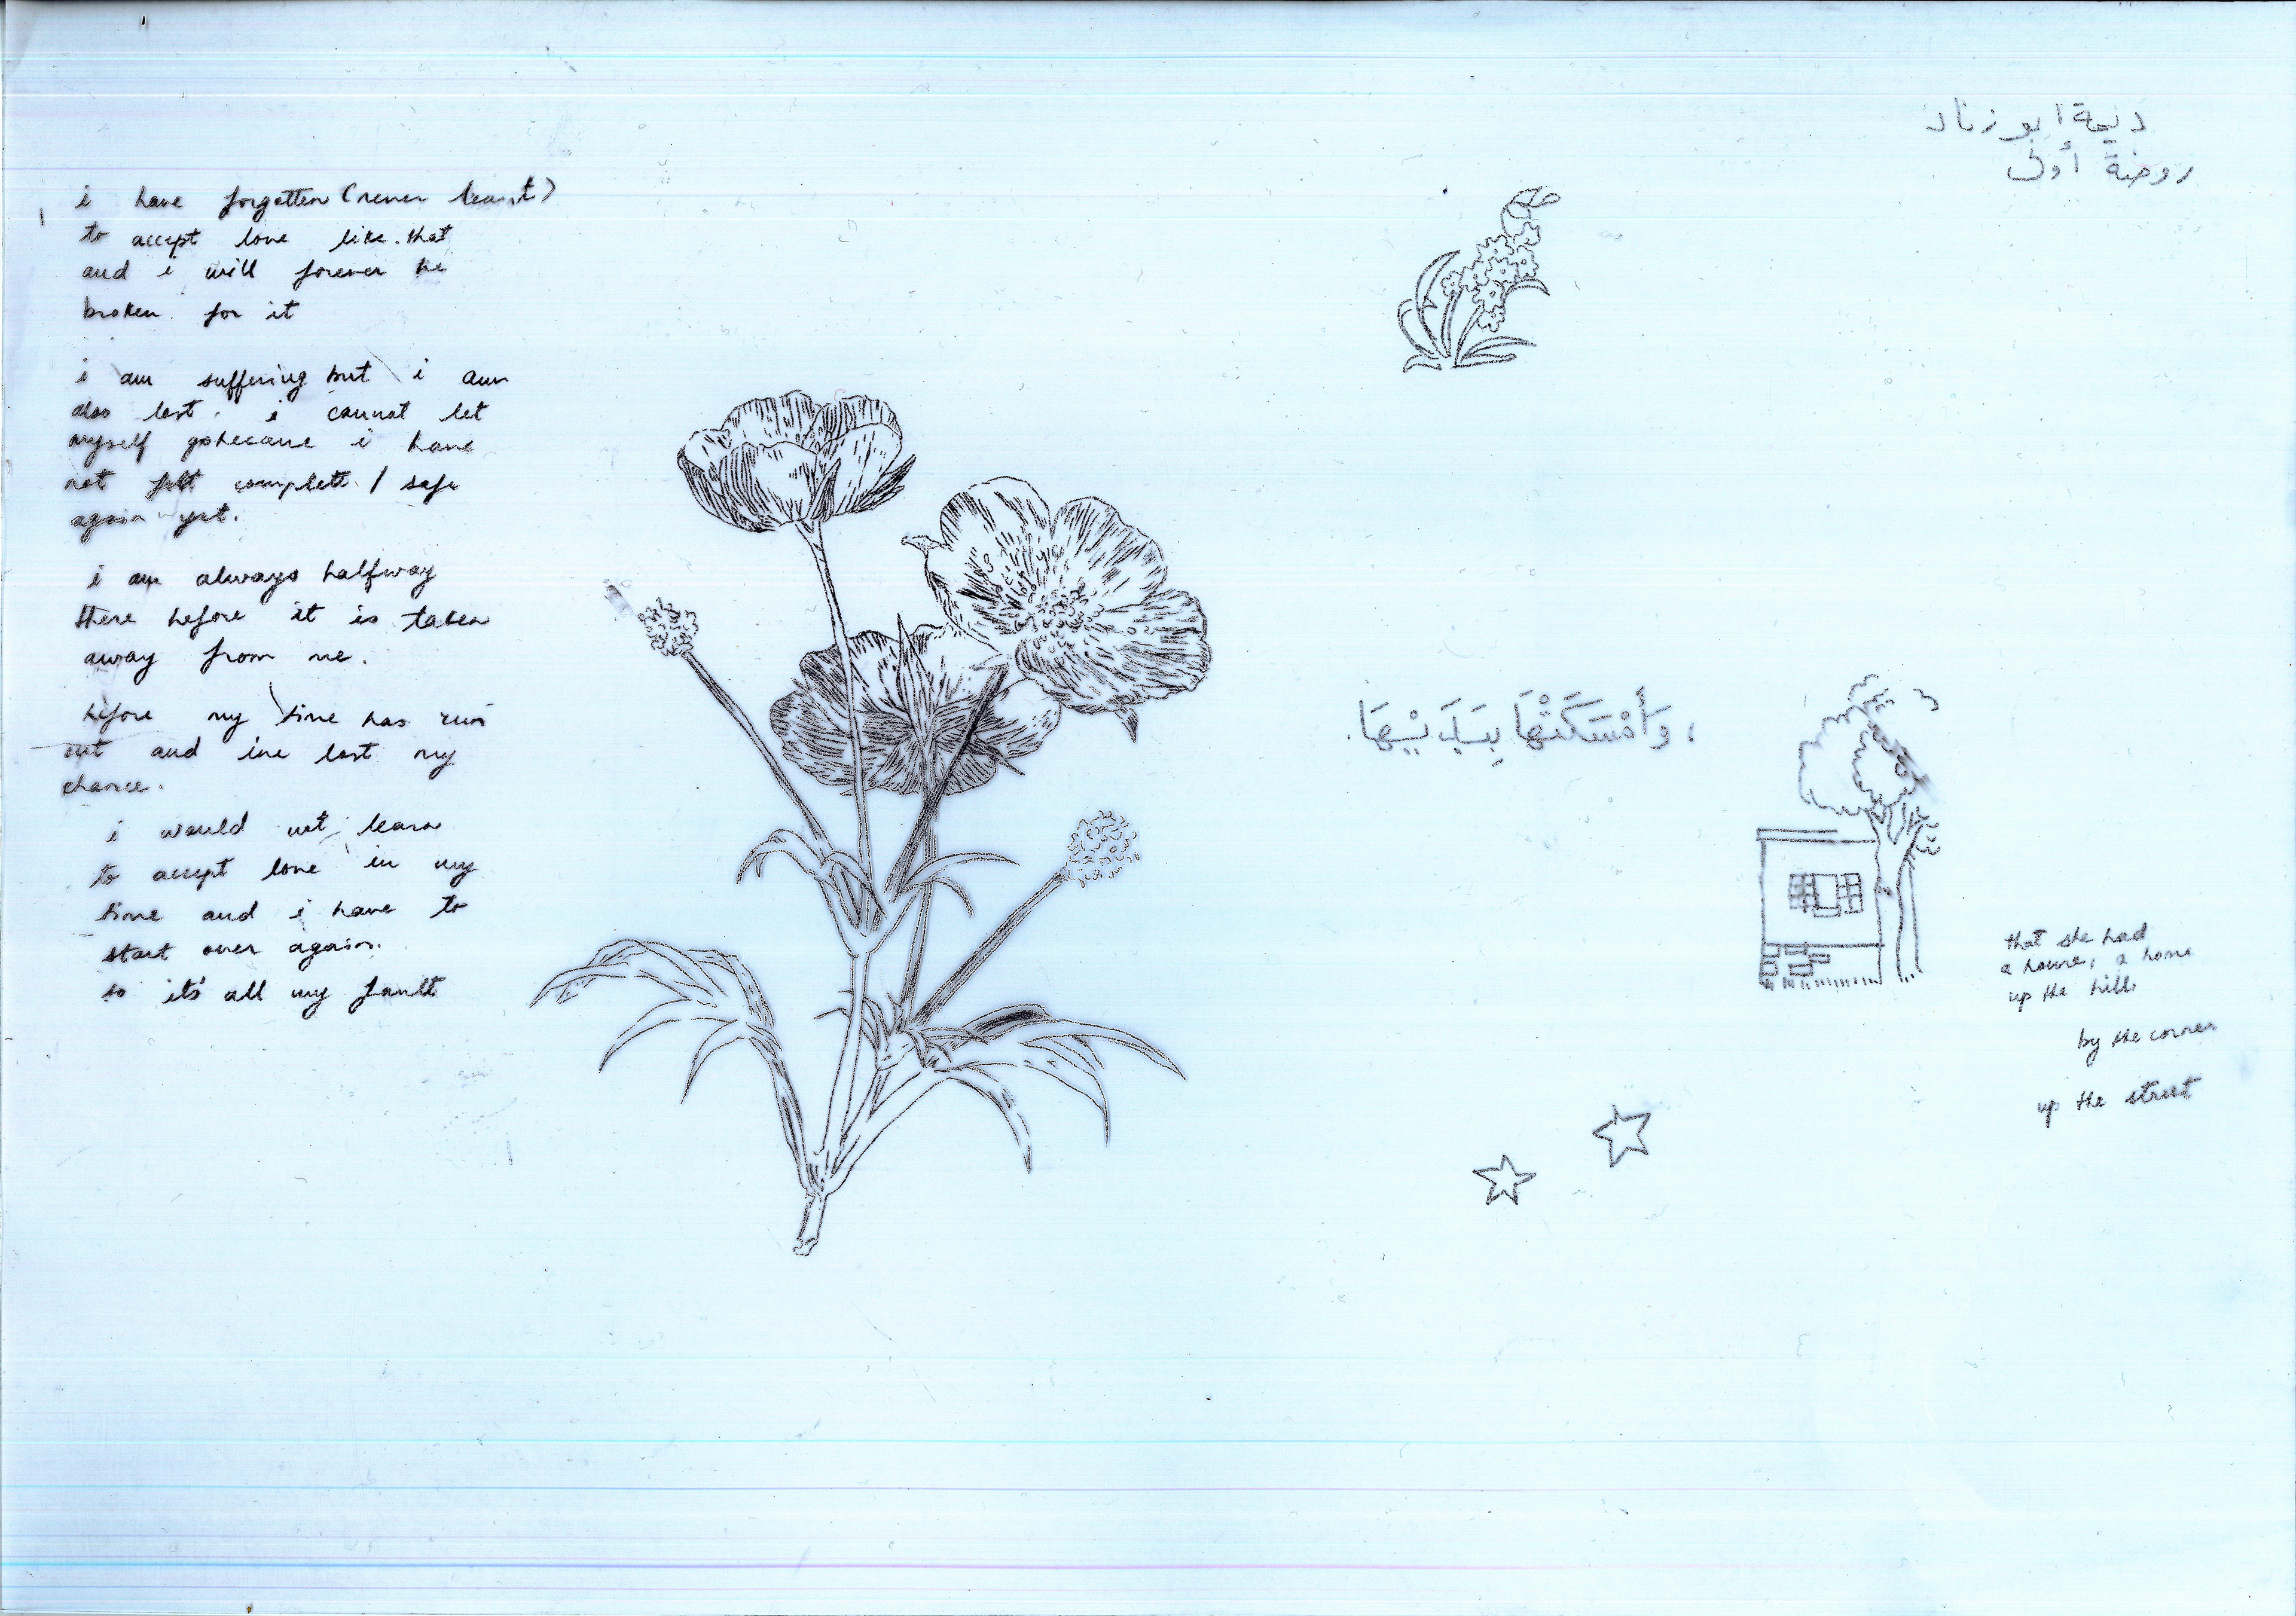 i have forgotten (never learnt)
to accept love like that
and i will forever be
broken for it
i am suffering but i am
also lost. i cannot let
myself go because i have
not felt complete / safe
again yet.
i am always halfway
there before it is taken
away from me.
before my time has run
out and ive lost my
chance.
i would not learn
to accept love in my
time and i have to
start over again.
so it's all my fault
ديمة ابو زناد
روضة أولى
، وَأَمْسَكَتْهَا بِيَدَيْهَا.
that she had
a house, a home
up the hill
by the corner
up the street